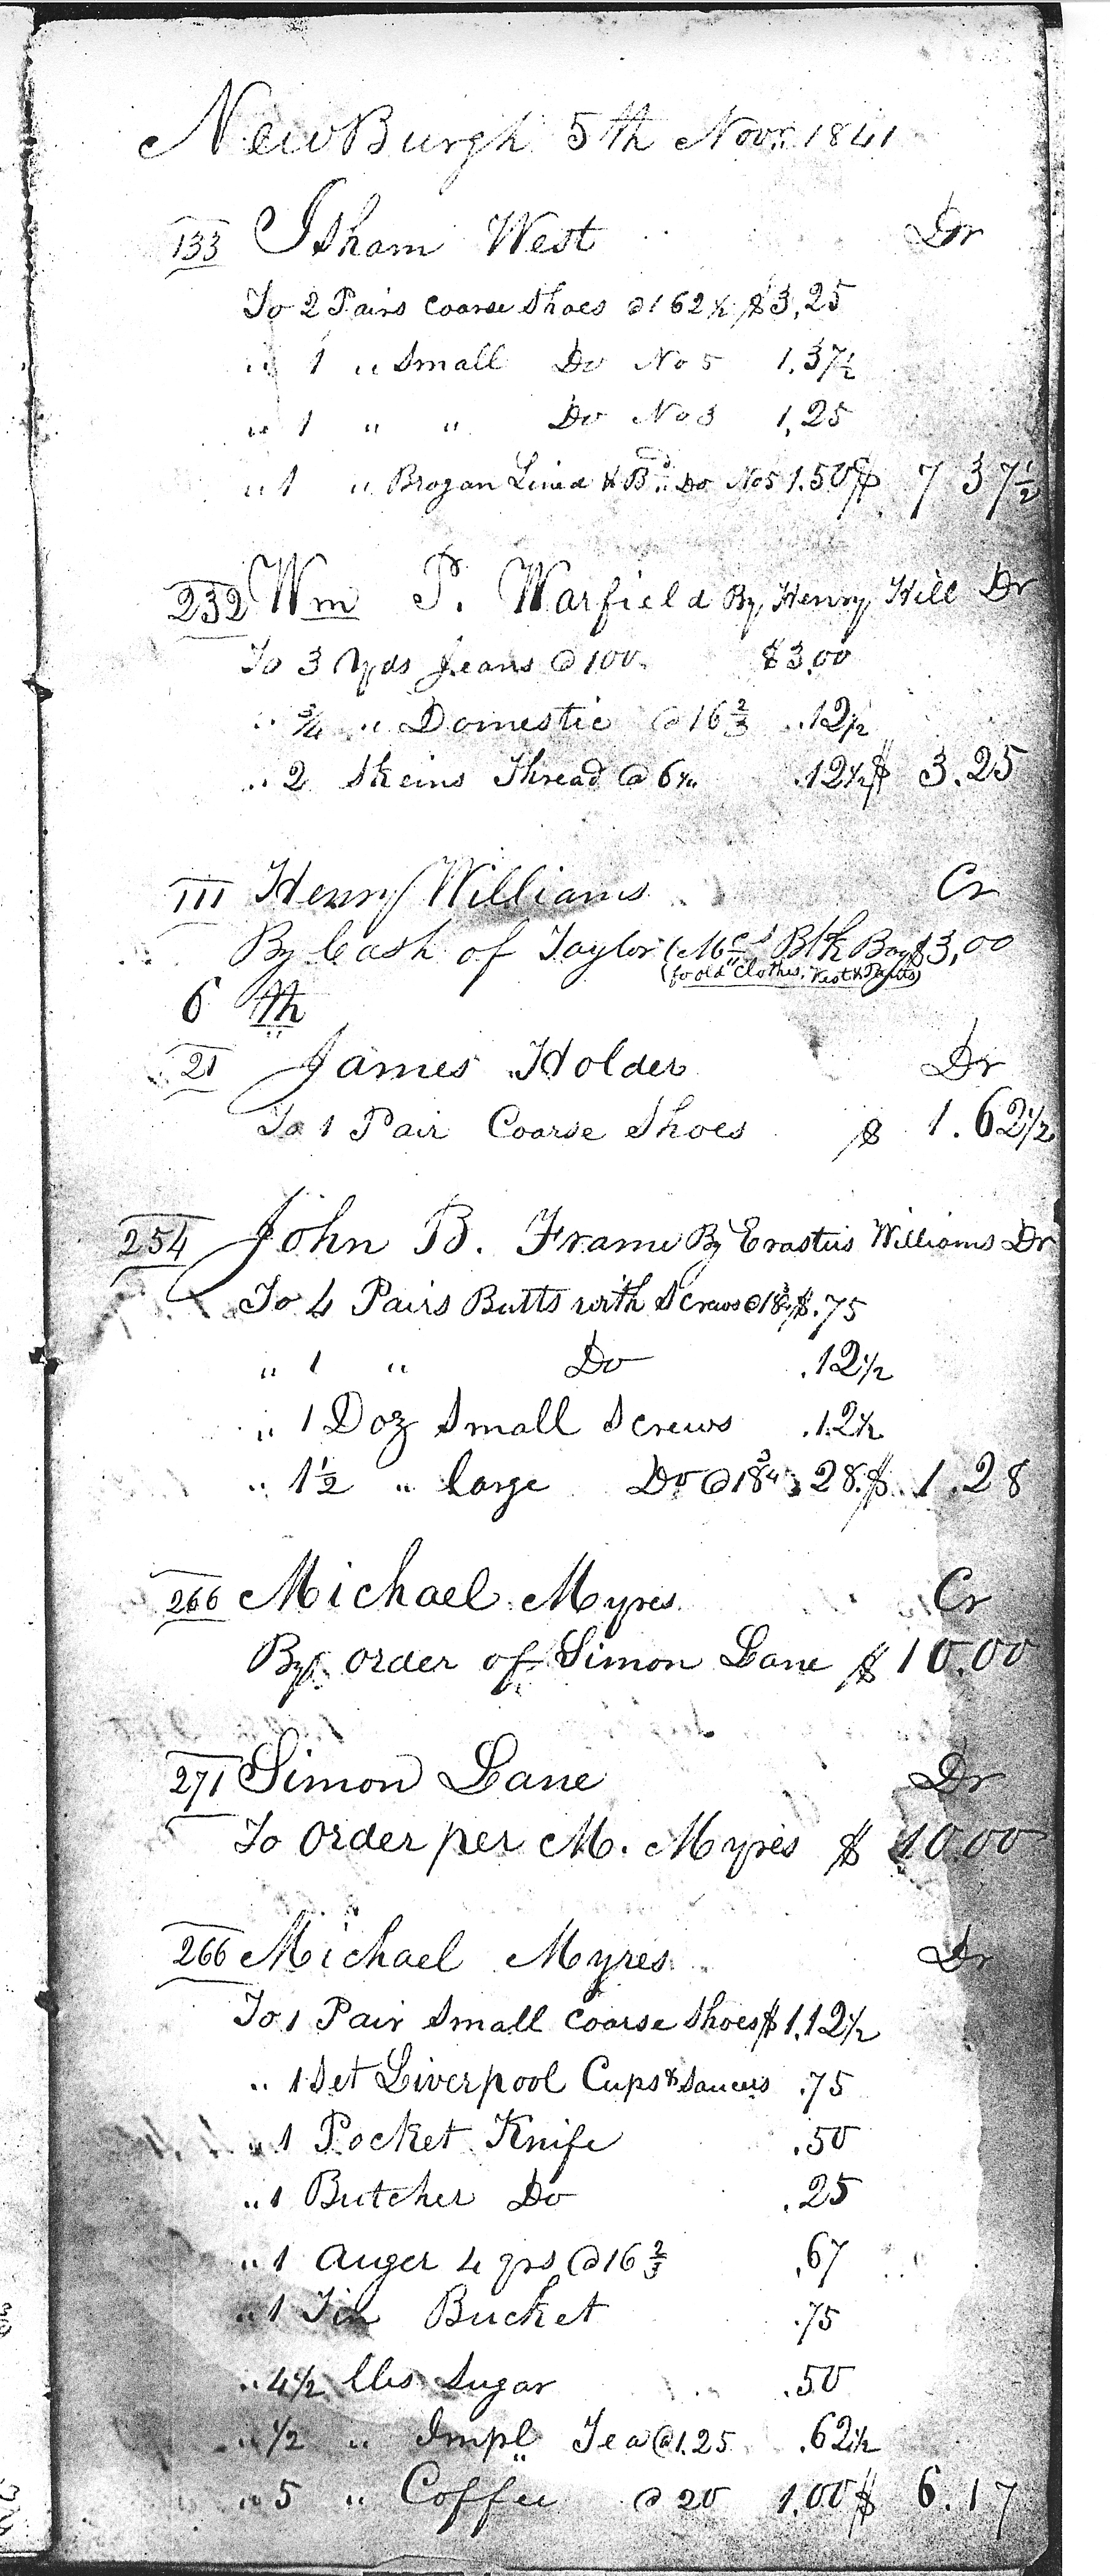 NewBurgh 5th Novr. 1841
133 Isham West Dr
To 2 Pairs Coarse Shoes @ 1 62½ $3,25
" 1 " Small Do No 5 1.37½
" 1 " " Do No 3 1,25
" 1 " Brogan Lined & Bd Do No 5 1.50 $ 7 37½
232 Wm P. Warfield By Henry Hill Dr
To 3 Yds Jeans @ 100 $3.00
" ¾ " Domestic @ 16⅔ .12½
" 2 Skeins Thread @ 6¼ .12½ $ 3.25
111 Henry Williams Cr
By Cash of Taylor (Mcs Blk Boy $3,00
(for old Clothes, Vest & Pants)
6 th
21 James Holder Dr
To 1 Pair Coarse Shoes $ 1.62½
254 John B. Frame By Erastus Williams Dr
To 4 Pairs Butts with Screws @ 18¾ $.75
" 1 " Do .12½
" 1 Doz Small Screws .12½
" 1½ " large Do @ 18¾ 28. $ 1.28
266 Michael Myres Cr
By order of Simon Lane $ 10.00
271 Simon Lane Dr
To order per M. Myres $ 10.00
266 Michael Myres Dr
To 1 Pair Small Coarse Shoes $ 1.12½
" 1 Set Liverpool Cups & Saucers .75
" 1 Pocket Knife .50
" 1 Butcher Do .25
" 1 Auger 4 qrs @ 16⅔ .67
" 1 Tin Bucket .75
" 4½ lbs Sugar .50
" ½ " Impl Tea @ 1.25 .62½
" 5 " Coffee @ 20 1.00 $ 6.17